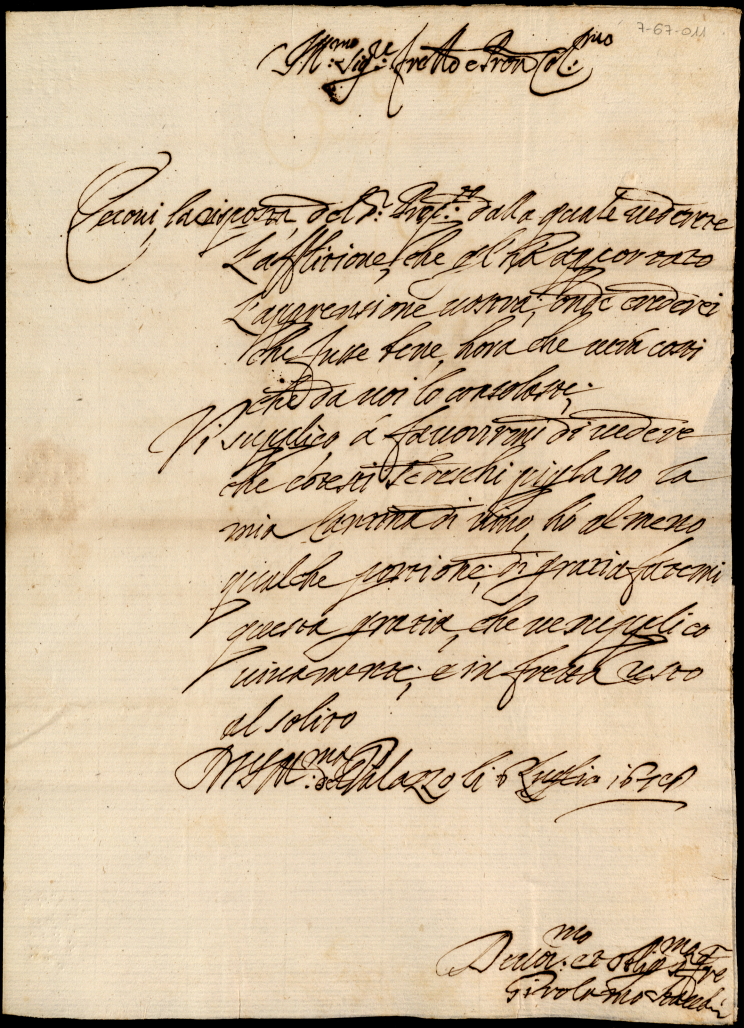 7-67-011
Ill.mo Sig.re fratello e Pron Col.mo
Eccovi la risposta del S.r dalla quale vederete
L'afflitione, che gl'ha apportato
L'apprensione vostra; onde crederei
che fusse bene, hora che
che da voi lo consolaste;
Vi supplico à favorirmi di vedere
che cotesti Tedeschi piglino la
mia Cantina di vino, ho al meno
qualche portione; di gratia fatemi
questa gratia, che ve supplico
vivamente; e in fretta resto
al solito
Di V.S. Ill.ma di Palazzo li 6 Luglio
Devot.mo et Oblig.mo fre
Girolamo